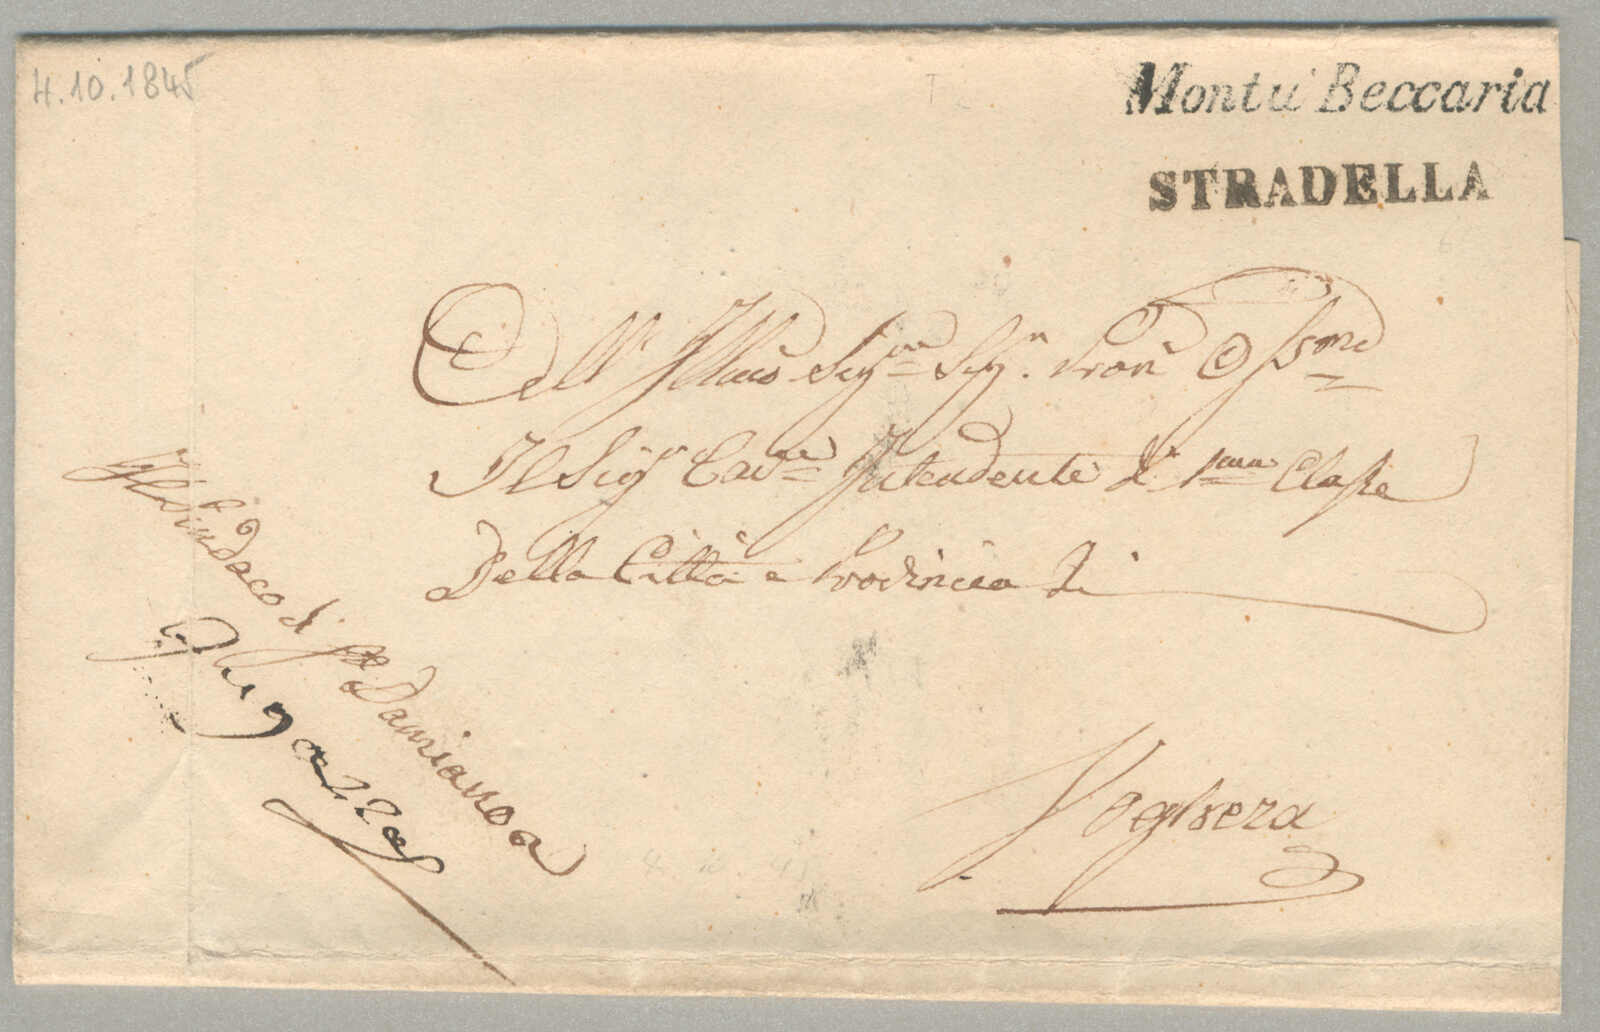 4.10.1845
Montù Beccaria
STRADELLA
Dell' Illmo Sigre Sigr. Pron
Il Sigr Cavre Intendente di 1ma Classe
Della Città e Provincia di
Voghera
Il Sindaco di Damiano